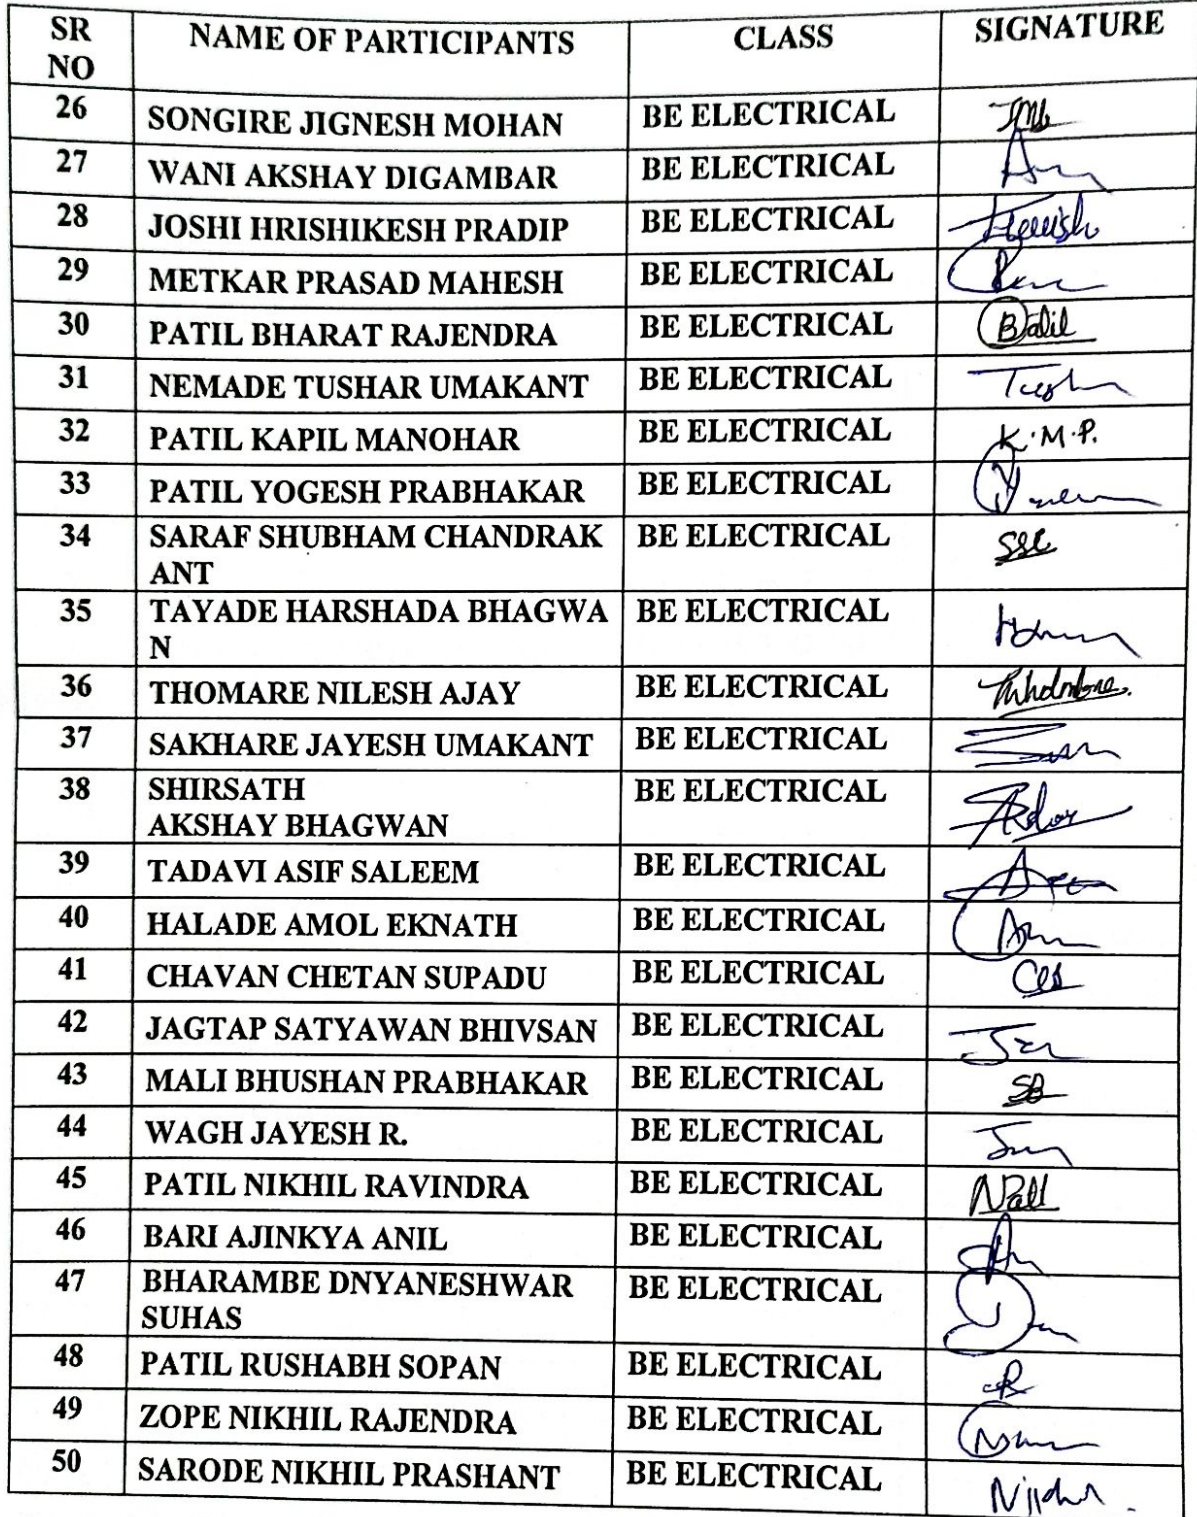 SR NO NAME OF PARTICIPANTS CLASS SIGNATURE
26 SONGIRE JIGNESH MOHAN BE ELECTRICAL
27 WANI AKSHAY DIGAMBAR BE ELECTRICAL
28 JOSHI HRISHIKESH PRADIP BE ELECTRICAL
29 METKAR PRASAD MAHESH BE ELECTRICAL
30 PATIL BHARAT RAJENDRA BE ELECTRICAL
31 NEMADE TUSHAR UMAKANT BE ELECTRICAL
32 PATIL KAPIL MANOHAR BE ELECTRICAL K.M.P.
33 PATIL YOGESH PRABHAKAR BE ELECTRICAL
34 SARAF SHUBHAM CHANDRAK BE ELECTRICAL
ANT
35 TAYADE HARSHADA BHAGWA BE ELECTRICAL
N
36 THOMARE NILESH AJAY BE ELECTRICAL
37 SAKHARE JAYESH UMAKANT BE ELECTRICAL
38 SHIRSATH BE ELECTRICAL
AKSHAY BHAGWAN
39 TADAVI ASIF SALEEM BE ELECTRICAL
40 HALADE AMOL EKNATH BE ELECTRICAL
41 CHAVAN CHETAN SUPADU BE ELECTRICAL
42 JAGTAP SATYAWAN BHIVSAN BE ELECTRICAL
43 MALI BHUSHAN PRABHAKAR BE ELECTRICAL
44 WAGH JAYESH R. BE ELECTRICAL
45 PATIL NIKHIL RAVINDRA BE ELECTRICAL
46 BARI AJINKYA ANIL BE ELECTRICAL
47 BHARAMBE DNYANESHWAR BE ELECTRICAL
SUHAS
48 PATIL RUSHABH SOPAN BE ELECTRICAL
49 ZOPE NIKHIL RAJENDRA BE ELECTRICAL
50 SARODE NIKHIL PRASHANT BE ELECTRICAL